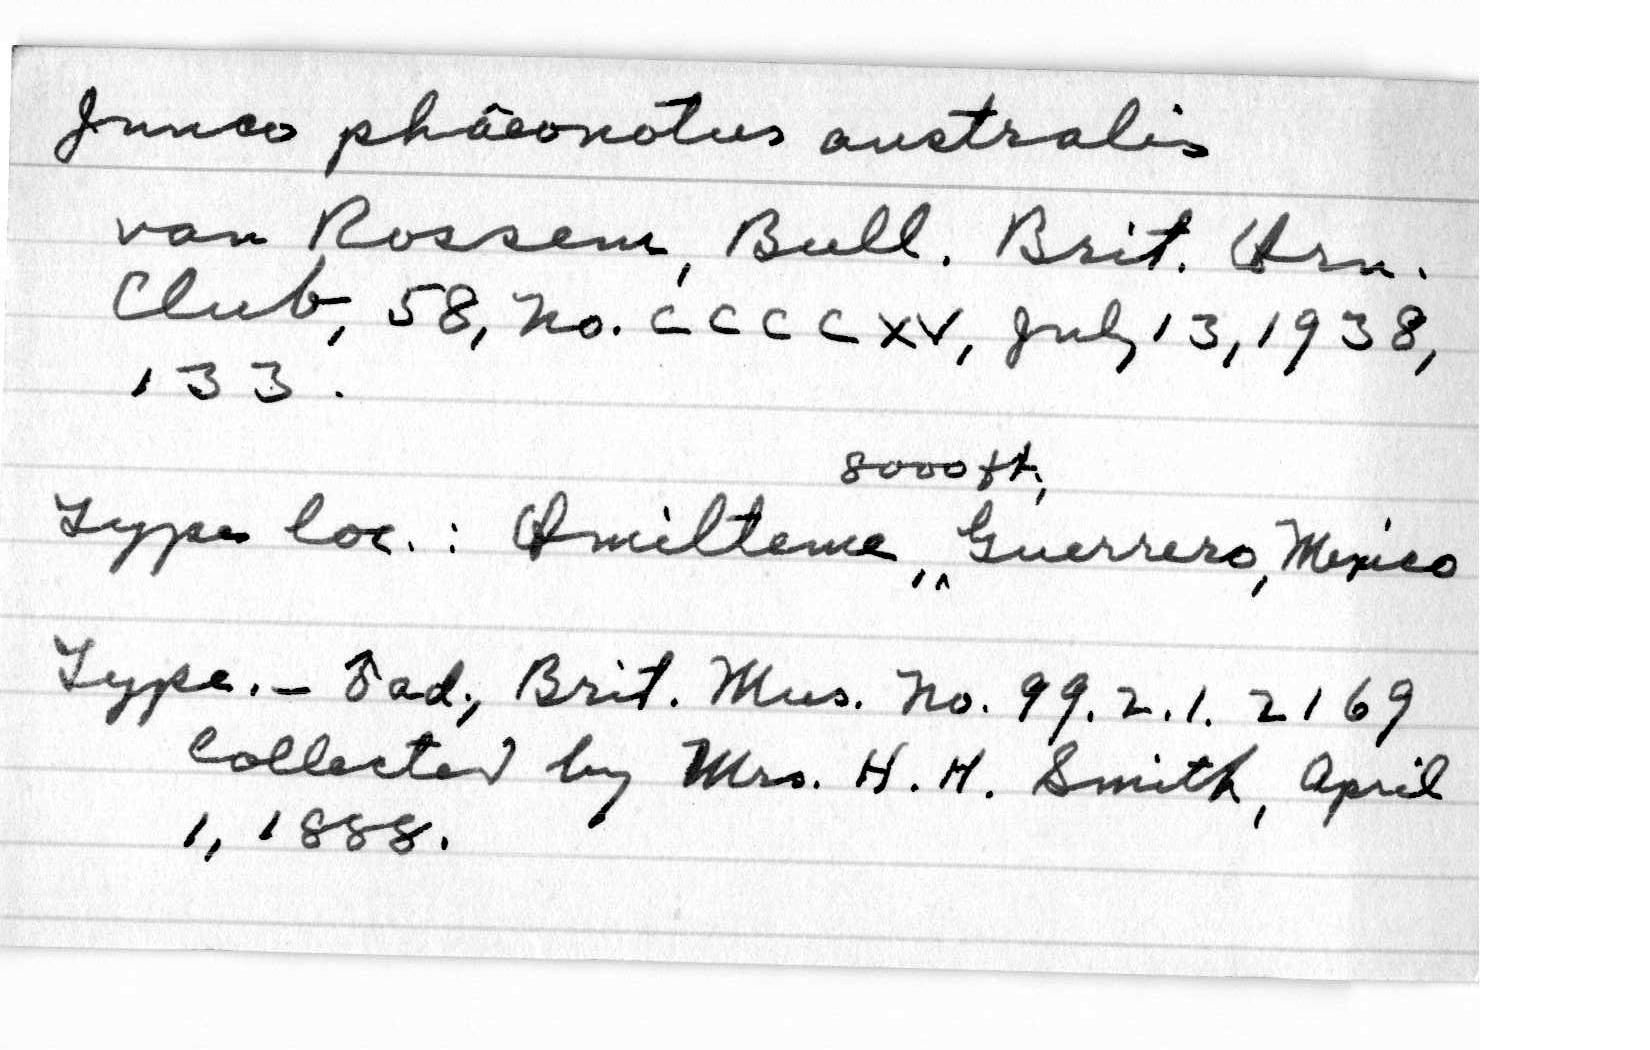 Junco phâeonotus australis
van Rossem, Bull. Brit. Orn.
Club, 58, No. CCCCXV, July 13, 1938,
133.
8000 ft,
Type loc.: Omilteme, ^ Guerrero, Mexico
Type. – ♂ ad., Brit. Mus. No. 99.2.1.2169
Collected by Mrs. H. H. Smith, April
1, 1888.